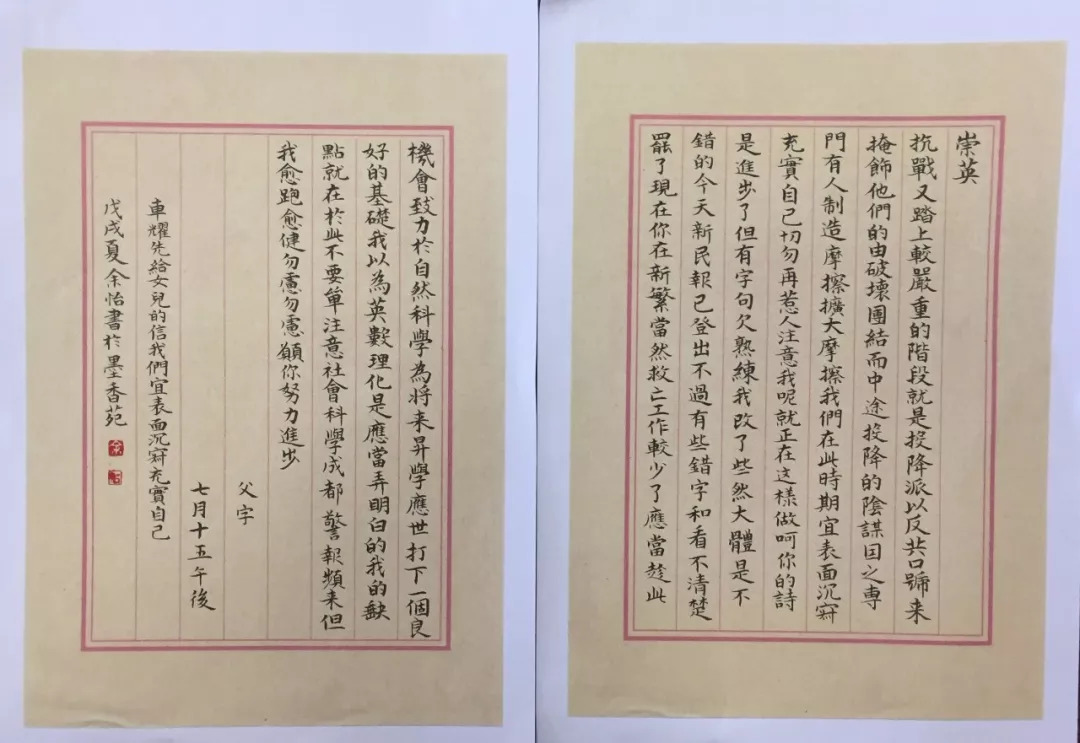 崇英
抗戰又踏上較嚴重的階段就是投降派以反共口號来
掩飾他們的由破壞團結而中途投降的陰謀因之專
門有人制造摩擦擴大摩擦我們在此時期宜表面沉寂
充實自己切勿再惹人注意我呢就正在这樣做呵你的詩
是進步了但有字句欠熟練我改了些然大體是不
錯的今天新民報已登出不過有些錯字和看不清楚
罷了現在你在新繁當然救亡工作較少了應當趁此
機會致力於自然科學為將来昇學應世打下一個良
好的基礎我以為英數理化是應當弄明白的我的缺
點就在於此不要单注意社會科學成都警報頻来但
我愈跑愈健勿慮勿慮願你努力進步
父字
七月十五午後
車耀先給女兒的信我們宜表面沉寂充實自己
戊戌夏余怡書於墨香苑